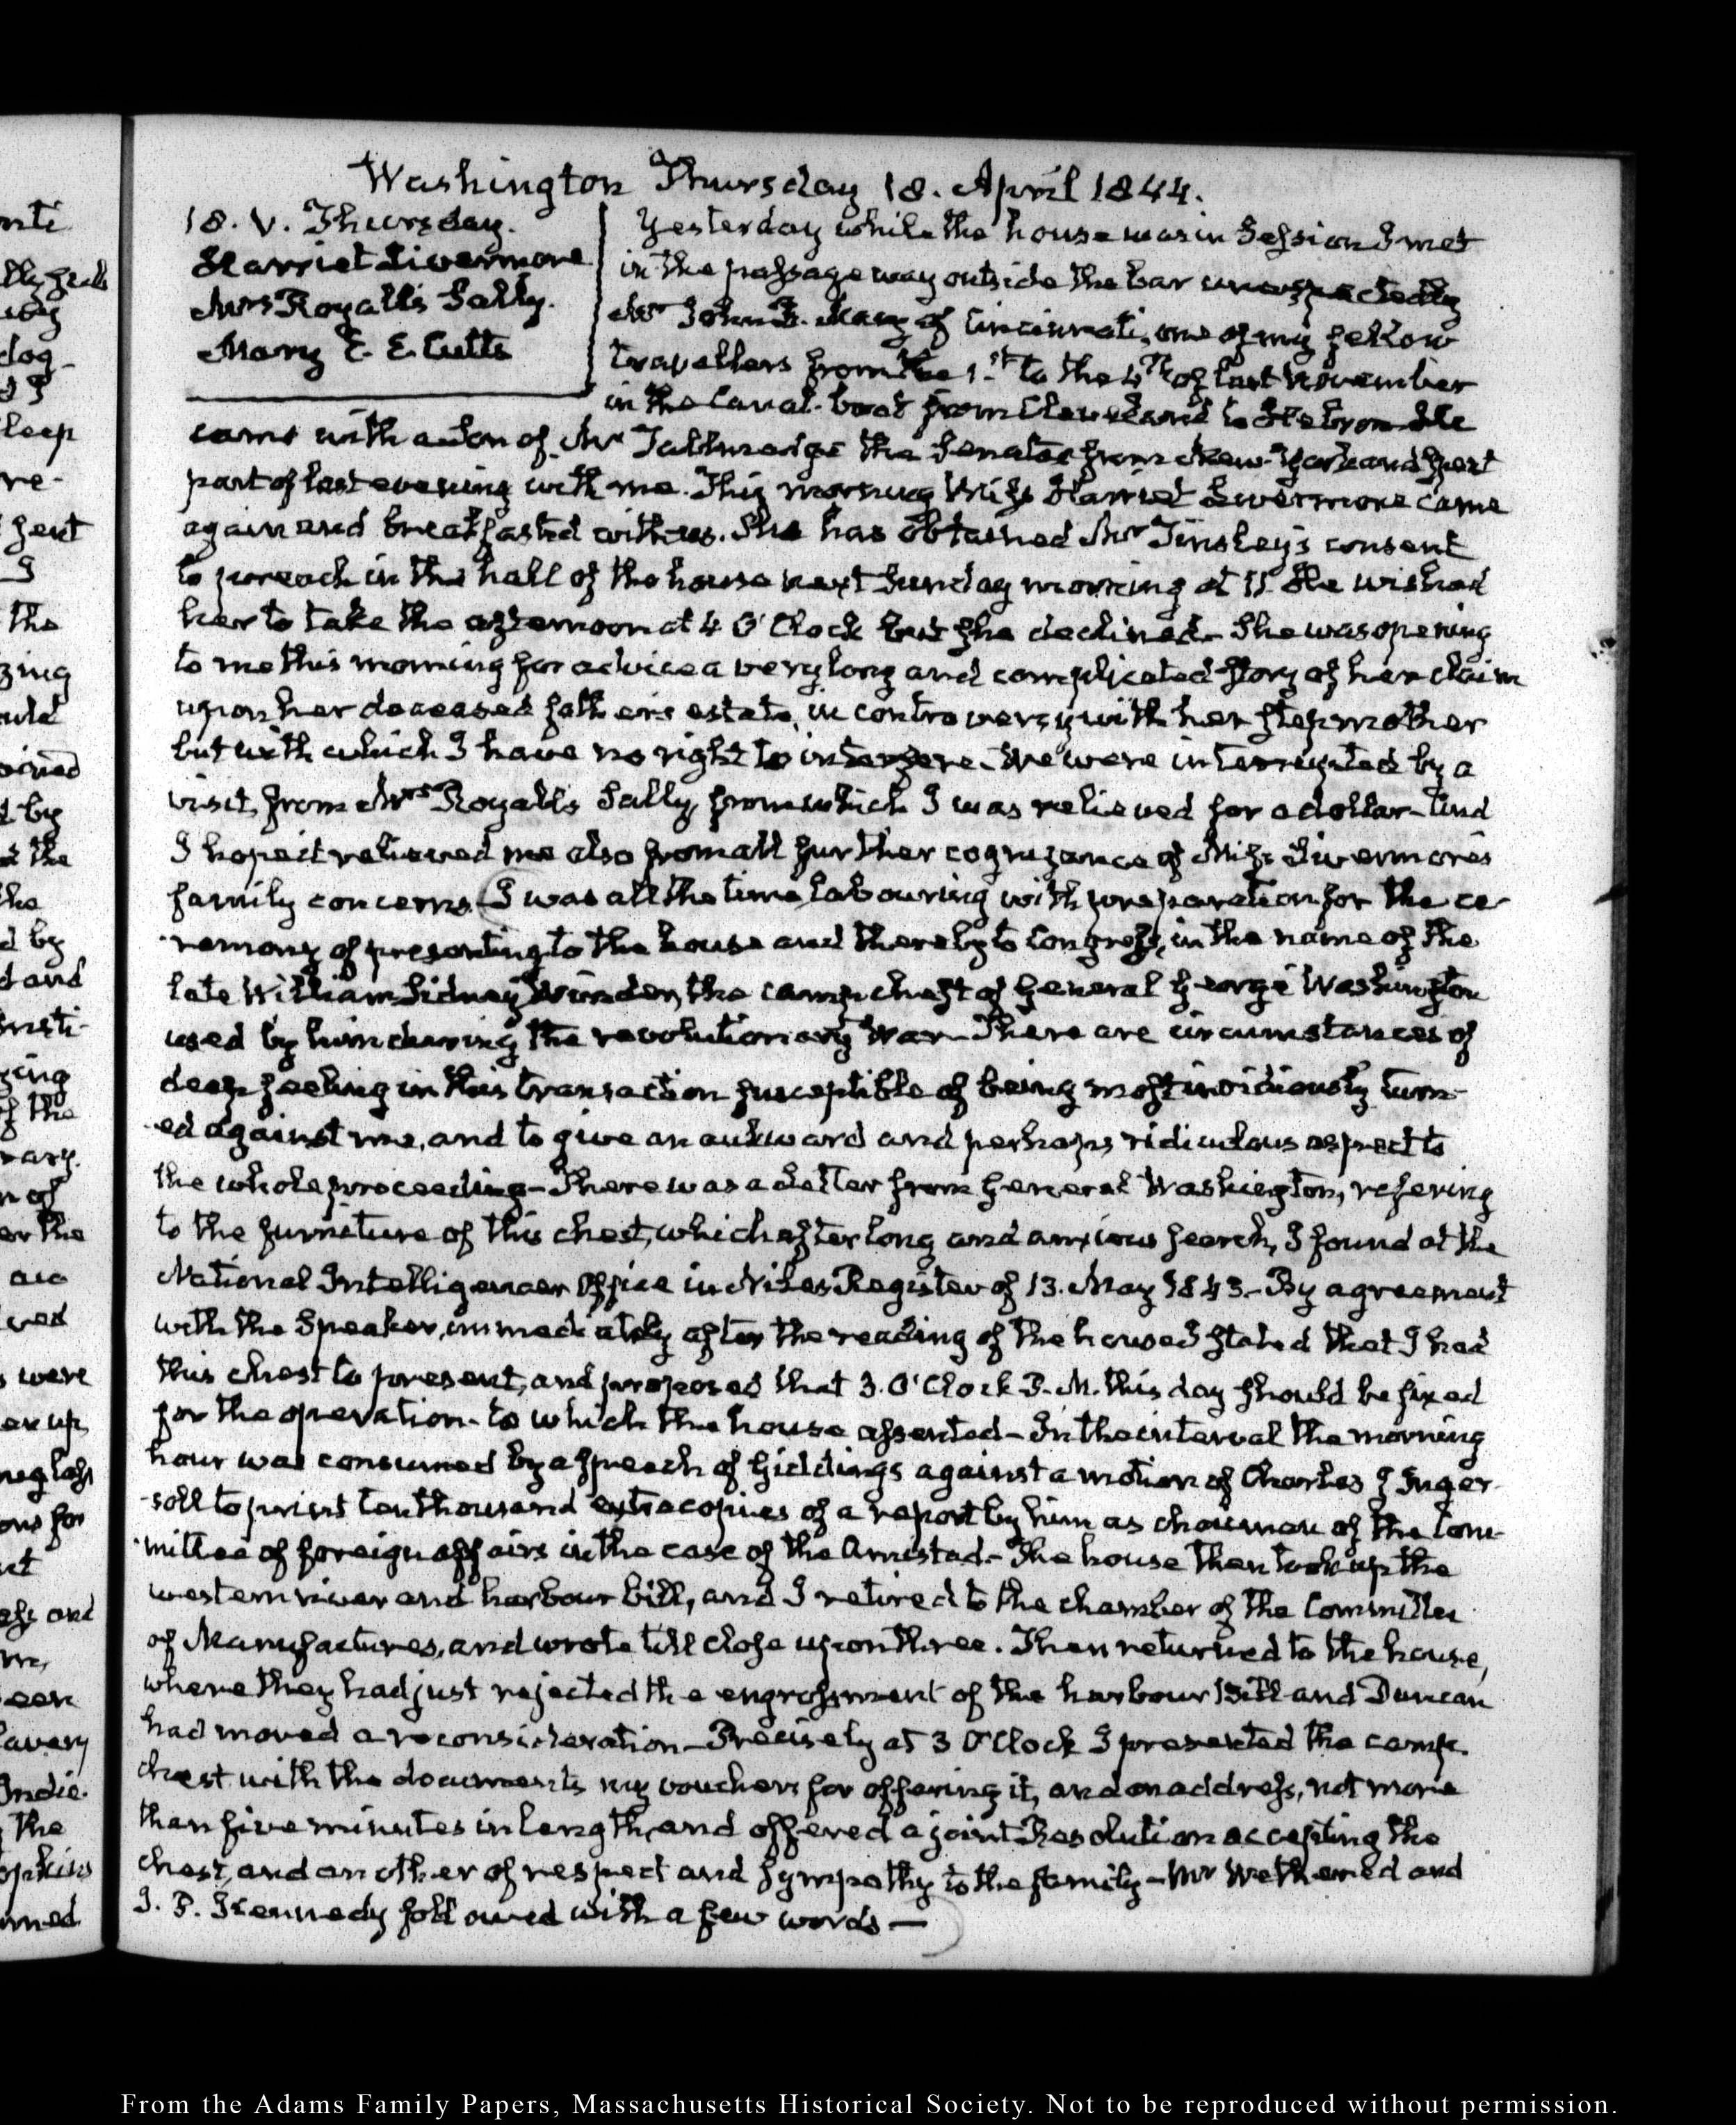 Washington Thursday 18. April 1844.
18. V. Thursday.
Harriet Livermore
Mrs Royall's Sally.
Mary E. E. Cutts
Yesterday while the house was in Session I met
in the passage way outside the bar unexpectedly
Mr John F. of Cincinnati, one of my fellow
travellers from the 1.st to the 4th of last November
in the Canal-boat from Cleveland to Hebron. He
came with a Son of Mr Tallmadge the Senator from New-York and spent
part of last evening with me. This morning Miss Harriet Livermore came
again and breakfasted with us. She has obtained Mr Tinsley's consent
to preach in the hall of the house next Sunday morning at 11. He wished
her to take the afternoon at 4 O'Clock but she declined. She was opening
to me this morning for advice a very long and complicated story of her claim
upon her deceased father's estate, in controversy with her stepmother
but with which I have no right to interfere. We were interrupted by a
visit from Mrs Royall's Sally, from which I was relieved for a dollar - And
I hope it relieved me also from all further cognizance of Miss Livermore's
family concerns. I was all the time labouring with preparation for the ce-
-remony of presenting to the house and thereby to Congress, in the name of the
late William Sidney Winder, the camp chest of General George Washington
used by him during the revolutionary War - There are circumstances of
deep feeling in this transaction susceptible of being most invidiously turn-
-ed against me, and to give an aukward and perhaps ridiculous aspect to
the whole proceeding - There was a letter from General Washington, refering
to the furniture of this chest, which after long and anxious search, I found at the
National Intelligencer Office in Niles Register of 13. May 1843 - By agreement
with the Speaker, immediately after the reading of the house I stated that I had
this chest to present, and proposed that 3. O'Clock P.M. this day should be fixed
for the operation - to which the house assented - In the interval the morning
hour was consumed by a speech of Giddings against a motion of Charles J Inger-
-soll to print ten thousand extra copies of a report by him as chairman of the Com-
-mittee of foreign affairs in the case of the Amistad. - The house then took up the
western river and harbour bill, and I retired to the chamber of the Committee
of Manufactures, and wrote till close upon three. Then returned to the house,
where they had just rejected the engrossment of the harbour Bill and Duncan
had moved a reconsideration - Precisely at 3 O'Clock I presented the camp-
chest with the documents my vouchers for offering it, and an address, not more
than five minutes in length, and offered a joint Resolution accepting the
chest, and an other of respect and sympathy to the family - Mr Wethered and
J. P. Kennedy followed with a few words —
From the Adams Family Papers, Massachusetts Historical Society. Not to be reproduced without permission.